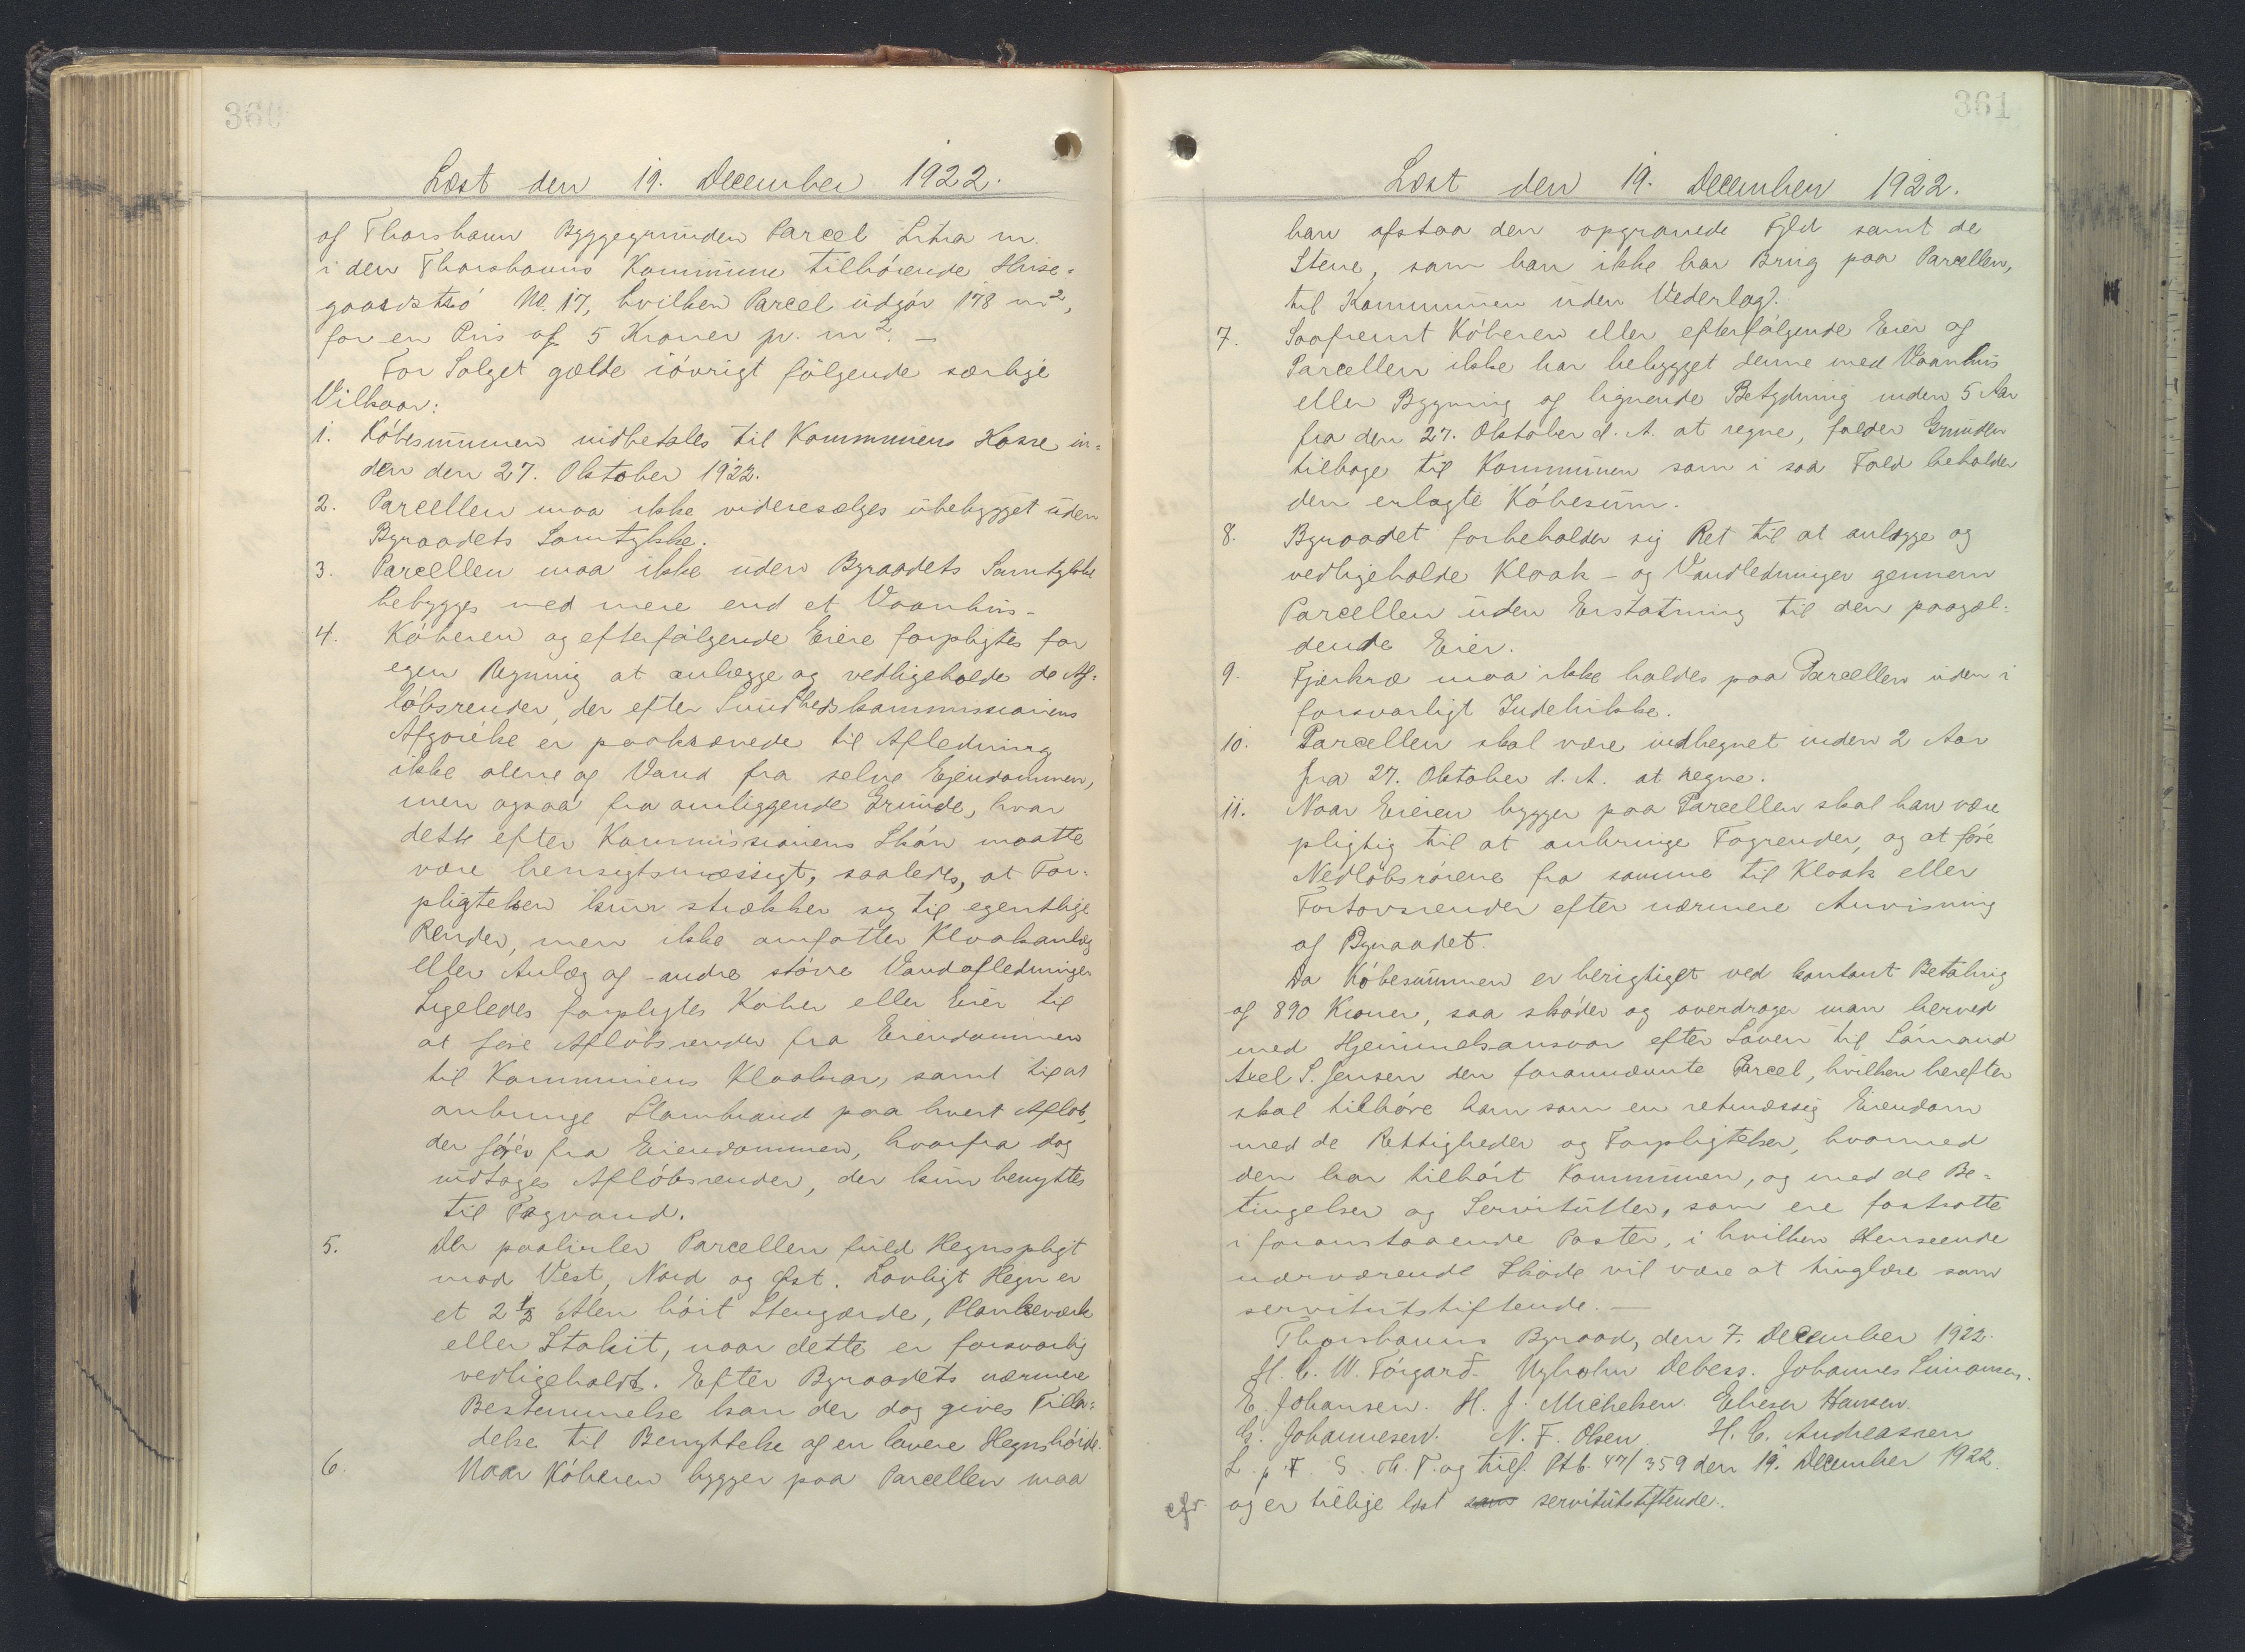 360
Læst den 19. December 1922.
af Thorshavn Byggegrunden Parcel Litra m.
i den Thorshavns Kommune tilhörende Huse-
No. 17, hvilken Parcel udgör 178 m²,
for en Pris af 5 Kroner pr. m². —
For Salget gælde iövrigt fölgende særlige
Vilkaar:
1. Köbesummen indbetales til Kommunens Kasse in-
den den 27. Oktober 1922.
2. Parcellen maa ikke videresælges ubebygget uden
Byraadets Samtykke.
3. Parcellen maa ikke uden Byraadets Samtykke
bebygges med mere end et Vaanhus.
4. Köberen og efterfölgende Eiere forpligtes for
egen Regning at anlægge og vedligeholde de Af-
löbsrender, der efter Sundhedskommissionens
Afgörelse er paakrævede til Afledning
ikke alene af Vand fra selve Ejendommen,
men ogsaa fra omliggende Grunde, hvor
dette efter Kommissionens Skön maatte
være hensigtsmæssigt, saaledes, at For-
pligtelsen kun strækker sig til egentlige
Render, men ikke omfatter Kloakanlæg
eller Anlæg af andre större Vandafledninger
Ligeledes forpligtes Köber eller Eier til
at före Aflöbsrender fra Eiendommen
til Kommunens Kloaker, samt til at
anbringe Slambrønd paa hvert Aflöb,
der förer fra Eiendommen, hvorfra dog
undtages Aflöbsrender, der kun benyttes
til Tagvand.
5. Der paahviler Parcellen fuld Hegnspligt
mod Vest, Nord og Øst. Lovligt Hegn er
et 2 1/2 Alen höit Stengærde, Plankeværk
eller Stakit, naar dette er forsvarlig
vedligeholdt. Efter Byraadets nærmere
Bestemmelse kan der dog gives Tilla-
delse til Benyttelse af en lavere Hegnshöide.
6. Naar Köberen bygger paa Parcellen maa
361
Læst den 19. December 1922.
han afstaa den opgravede Fyld samt de
Stene, som han ikke har Brug paa Parcellen,
til Kommunen uden Vederlag.
7. Saafremt Köberen eller efterfölgende Eier af
Parcellen ikke har bebygget denne med Vaanhus
eller Bygning af lignende Betydning inden 5 Aar
fra den 27. Oktober d. A. at regne, falder Grunden
tilbage til Kommunen som i saa Fald beholder
den erlagte Köbesum.
8. Byraadet forbeholder sig Ret til at anlægge og
vedligeholde Kloak- og Vandledninger gennem
Parcellen uden Erstatning til den paagæl-
dende Eier.
9. Fjerkræ maa ikke holdes paa Parcellen uden i
forsvarligt Indelukke.
10. Parcellen skal være indhegnet inden 2 Aar
fra 27. Oktober d. A. at regne.
11. Naar Eieren bygger paa Parcellen skal han være
pligtig til at anbringe Tagrender, og at före
Nedlöbsrörene fra samme til Kloak eller
Fortovsrender efter nærmere Anvisning
af Byraadet.
Da Köbesummen er berigtiget ved kontant Betaling
af 890 Kroner, saa sköder og overdrager man herved
med Hjemmelsansvar efter Loven til Sömand
Axel S. Jensen den forannævnte Parcel, hvilken herefter
skal tilhöre ham som en retmæssig Eiendom
med de Rettigheder og Forpligtelser, hvormed
den har tilhört Kommunen, og med de Be-
tingelser og Servitutter, som ere fastsatte
i foranstaaende Poster, i hvilken Henseende
nærværende Sköde vil være at tinglæse som
servitutstiftende. —
Thorshavns Byraad, den 7. December 1922.
H. C. W. Tórgarð. Debess. Johannes Simonsen.
E. Johansen. H. J. Michelsen. Elieser Hansen.
G. Johannesen. N. F. Olsen. H. C. Andreassen
L. p. F. S. Th. T. og tilf. Ptb. 47/359 den 19. December 1922.
cfr. og er tillige læst som servitutstiftende.